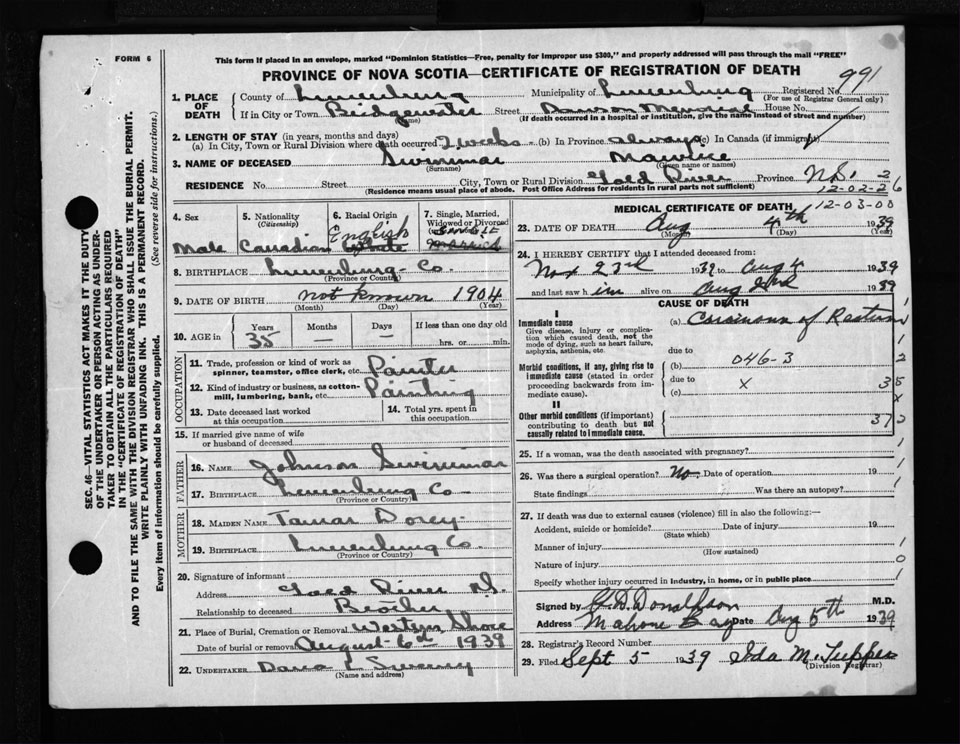 This form if placed in an envelope, marked "Dominion Statistics—Free, penalty for improper use $300," and properly addressed will pass through the mail "FREE"
FORM 6
PROVINCE OF NOVA SCOTIA—CERTIFICATE OF REGISTRATION OF DEATH
991
1. PLACE OF DEATH
County of Lunenburg Municipality of Lunenburg Registered No.
(For use of Registrar General only)
If in City or Town Bridgewater Street Dawson Memorial House No.
(Name) (If death occurred in a hospital or institution, give the name instead of street and number)
2. LENGTH OF STAY (in years, months and days)
(a) In City, Town or Rural Division where death occurred 2 weeks (b) In Province always (c) In Canada (if immigrant)
3. NAME OF DECEASED Swinimar Maurice
(Surname) (Given name or names)
RESIDENCE No. Street City, Town or Rural Division Gold River Province N.S. 2
(Residence means usual place of abode. Post Office Address for residents in rural parts not sufficient)
12-02-26
12-03-00
4. Sex Male
5. Nationality (Citizenship) Canadian
6. Racial Origin English
7. Single, Married, Widowed or Divorced
8. BIRTHPLACE Lunenburg Co.
(Province or Country)
9. DATE OF BIRTH not known 1904
(Month) (Day) (Year)
10. AGE in Years 35 Months — Days — If less than one day old hrs. or min.
OCCUPATION
11. Trade, profession or kind of work as spinner, teamster, office clerk, etc. Painter
12. Kind of industry or business, as cotton-mill, lumbering, bank, etc. Painting
13. Date deceased last worked at this occupation
14. Total yrs. spent in this occupation
15. If married give name of wife or husband of deceased
FATHER
16. NAME Johnson Swinimar
17. BIRTHPLACE Lunenburg Co
(Province or Country)
MOTHER
18. MAIDEN NAME Tamar Dorey
19. BIRTHPLACE Lunenburg Co.
(Province or Country)
20. Signature of informant
Address Gold River N.S.
Relationship to deceased Brother
21. Place of Burial, Cremation or Removal Western Shore
Date of burial or removal August 6th 1939
22. UNDERTAKER
(Name and address)
MEDICAL CERTIFICATE OF DEATH
23. DATE OF DEATH Aug 4th 1939
(Month) (Day) (Year)
24. I HEREBY CERTIFY that I attended deceased from:
Nov 23rd 1939 to Aug 4 1939
and last saw him alive on Aug 1939
CAUSE OF DEATH
I
Immediate cause
Give disease, injury or complication which caused death, not the mode of dying, such as heart failure, asphyxia, asthenia, etc.
(a) Carcinoma of Rectum
due to
Morbid conditions, if any, giving rise to immediate cause (stated in order proceeding backwards from immediate cause).
(b) 046-3
due to x
(c)
II
Other morbid conditions (if important) contributing to death but not causally related to immediate cause.
1
1
2
35
x
372
25. If a woman, was the death associated with pregnancy?
26. Was there a surgical operation? No. Date of operation 19
State findings Was there an autopsy?
27. If death was due to external causes (violence) fill in also the following:—
Accident, suicide or homicide? Date of injury 19
(State which)
Manner of injury
(How sustained)
Nature of injury
Specify whether injury occurred in industry, in home, or in public place
Signed by G. D. Donaldson M.D.
Address Mahone Bay Date Aug 5th 1939
28. Registrar's Record Number
29. Filed Sept 5 1939 Ida M. Tupper
(Division Registrar)
SEC. 46—VITAL STATISTICS ACT MAKES IT THE DUTY
OF THE UNDERTAKER OR PERSON ACTING AS UNDER-
TAKER TO OBTAIN ALL THE PARTICULARS REQUIRED
IN THE "CERTIFICATE OF REGISTRATION OF DEATH"
AND TO FILE THE SAME WITH THE DIVISION REGISTRAR WHO SHALL ISSUE THE BURIAL PERMIT.
WRITE PLAINLY WITH UNFADING INK. THIS IS A PERMANENT RECORD.
Every item of information should be carefully supplied. (See reverse side for instructions.)